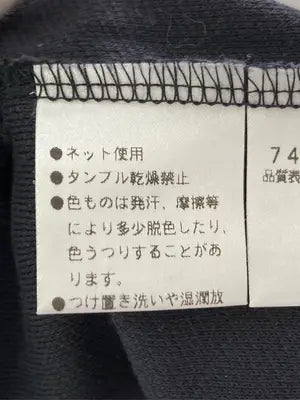 ●ネット使用
●タンブル乾燥禁止
●色ものは発汗、摩擦等
により多少脱色したり、
色うつりすることがあ
ります。
●つけ置き洗いや湿潤放
74
品質表